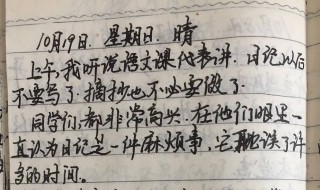 10月19日. 星期日. 晴
上午，我听说语文课代表讲．日记以后
不要写了．摘抄也不必要做了．
同学们，都非常高兴．在他们眼里一
直认为日记是一件麻烦事，它耽误了许
多的时间。